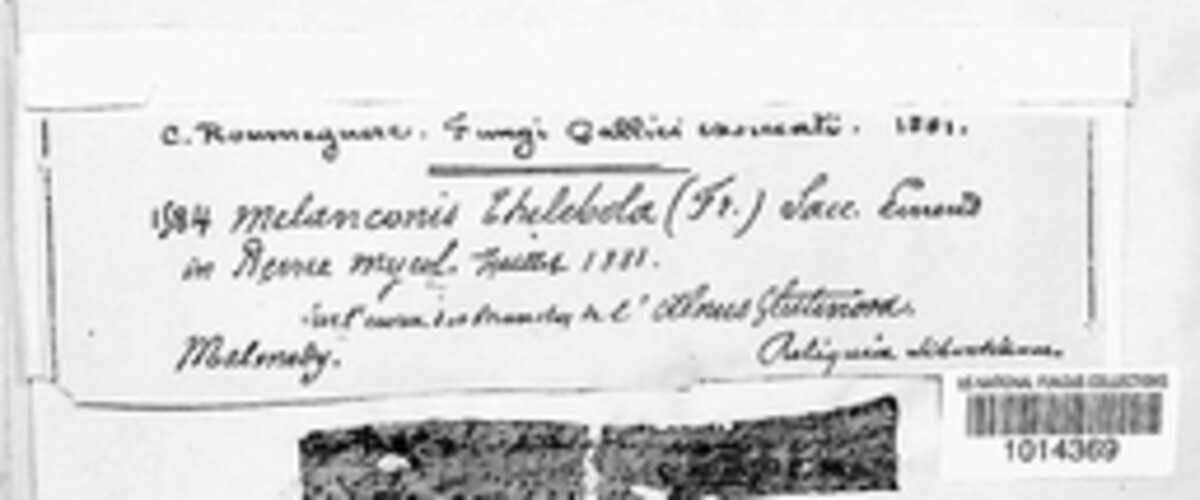 C. Roumeguere. Fungi Gallici exsiccati. 1881.
1584 Melanconis Thelebola (Fr.) Sacc. Emend
in Revue mycol. Juillet 1881.
Sur l'écorce des branches de l' Alnus Glutinosa.
Malmedy.
Reliquiae Libertianae.
US NATIONAL FUNGUS COLLECTIONS
1014369